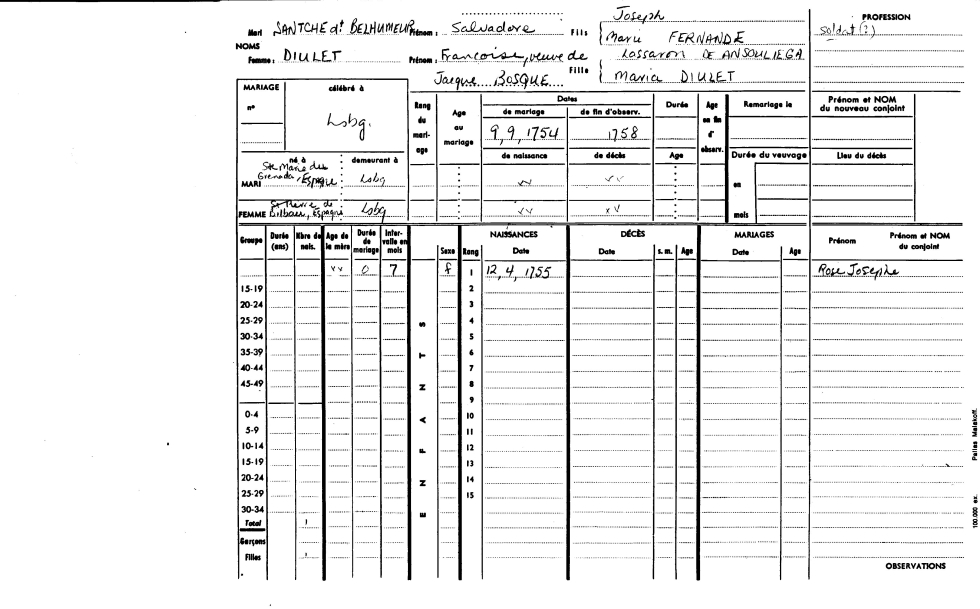 Joseph
PROFESSION
Mari SANTCHE dt BELHUMEUR Prénom : Salvadore Fils Marie FERNANDE soldat (?)
NOMS
Femme : DIULET Prénom : Francoise, veuve de Fille Lossaron DE ANSOULIEGA
Jacque BOSQUE Maria DIULET
MARIAGE célébré à Rang du mariage Age au mariage Dates Durée Age en fin d' observ. Remariage le Prénom et NOM du nouveau conjoint
n° de mariage de fin d'observ.
Lsbg. 9, 9, 1754 1758
de naissance de décès Age Durée du veuvage Lieu du décès
né à demeurant à
MARI Ste Marie des Grenada, Espagne Lsbg vv vv en
FEMME Bilbau, Espagne Lsbg vv xv mois
Groupe Durée (ans) Nbre de nais. Age de la mère Durée de mariage Intervalle en mois NAISSANCES DÉCÈS MARIAGES Prénom Prénom et NOM du conjoint
Sexe Rang Date Date s. m. Age Date Age
vv 0 7 f 1 12, 4, 1755 Rose Josephe
15-19 2
20-24 3
25-29 4
30-34 5
35-39 6
40-44 7
45-49 8
9
0-4 10
5-9 11
10-14 12
15-19 13
20-24 14
25-29 15
30-34
Total 1
Garçons
Filles 1
ENFANTS
OBSERVATIONS
100.000 ex. Pallas Malakoff.